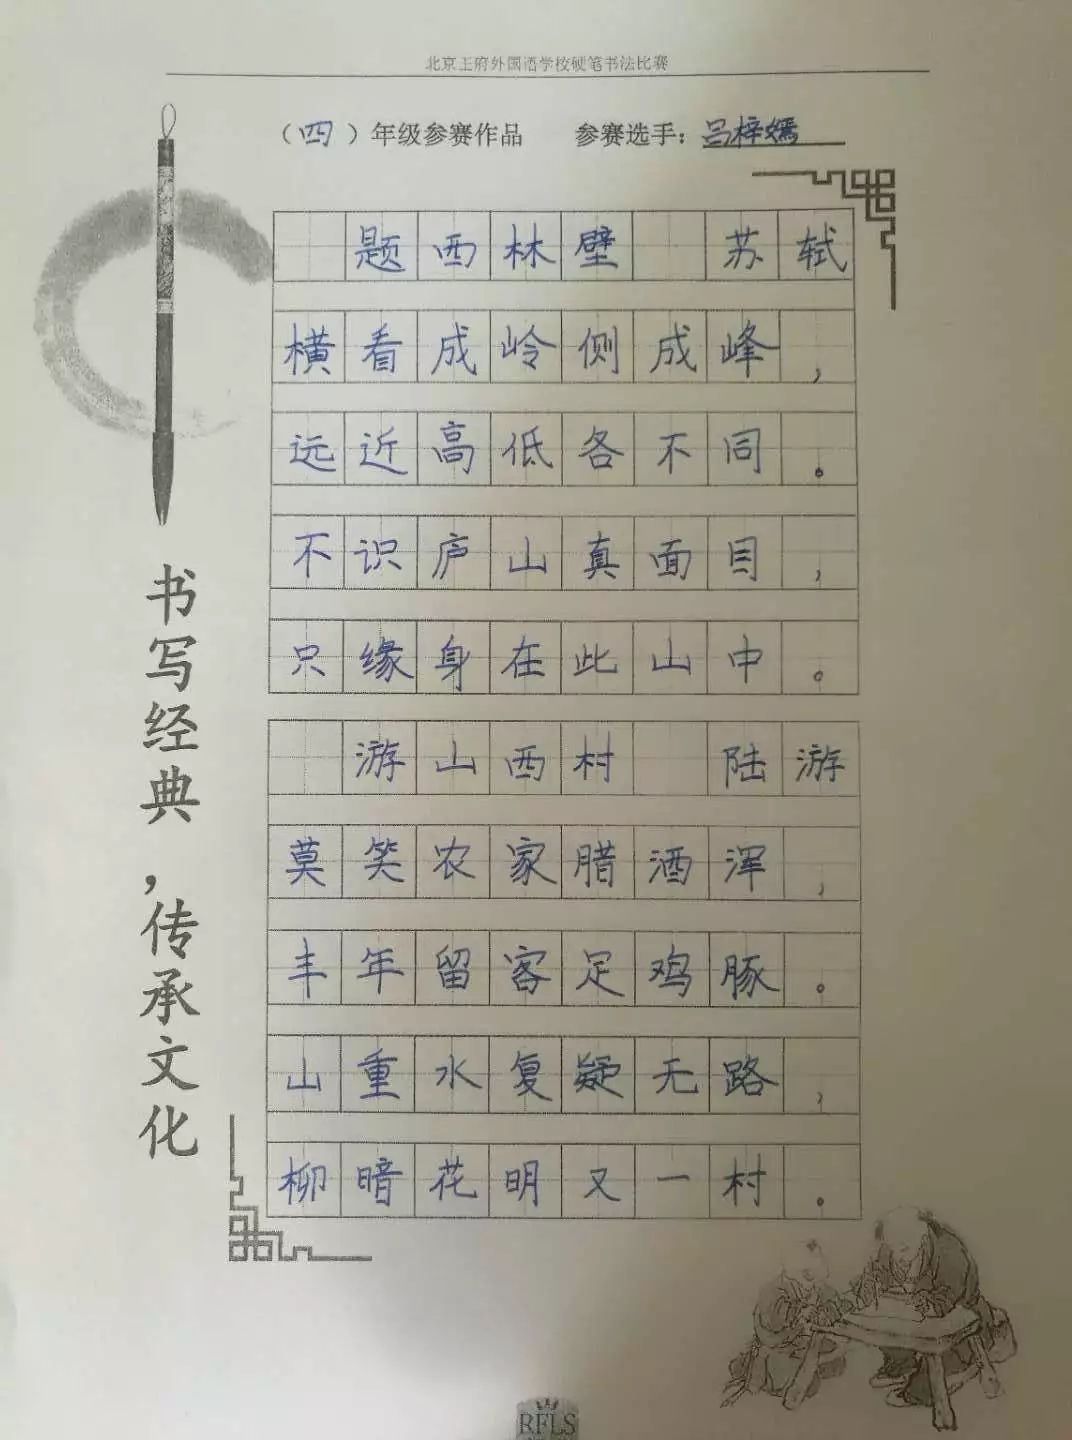 北京王府外国语学校硬笔书法比赛
（四）年级参赛作品 参赛选手：吕梓嫣
题西林壁 苏轼
横看成岭侧成峰，
远近高低各不同。
不识庐山真面目，
只缘身在此山中。
游山西村 陆游
莫笑农家腊酒浑，
丰年留客足鸡豚。
山重水复疑无路，
柳暗花明又一村。
书写经典，传承文化
RFLS